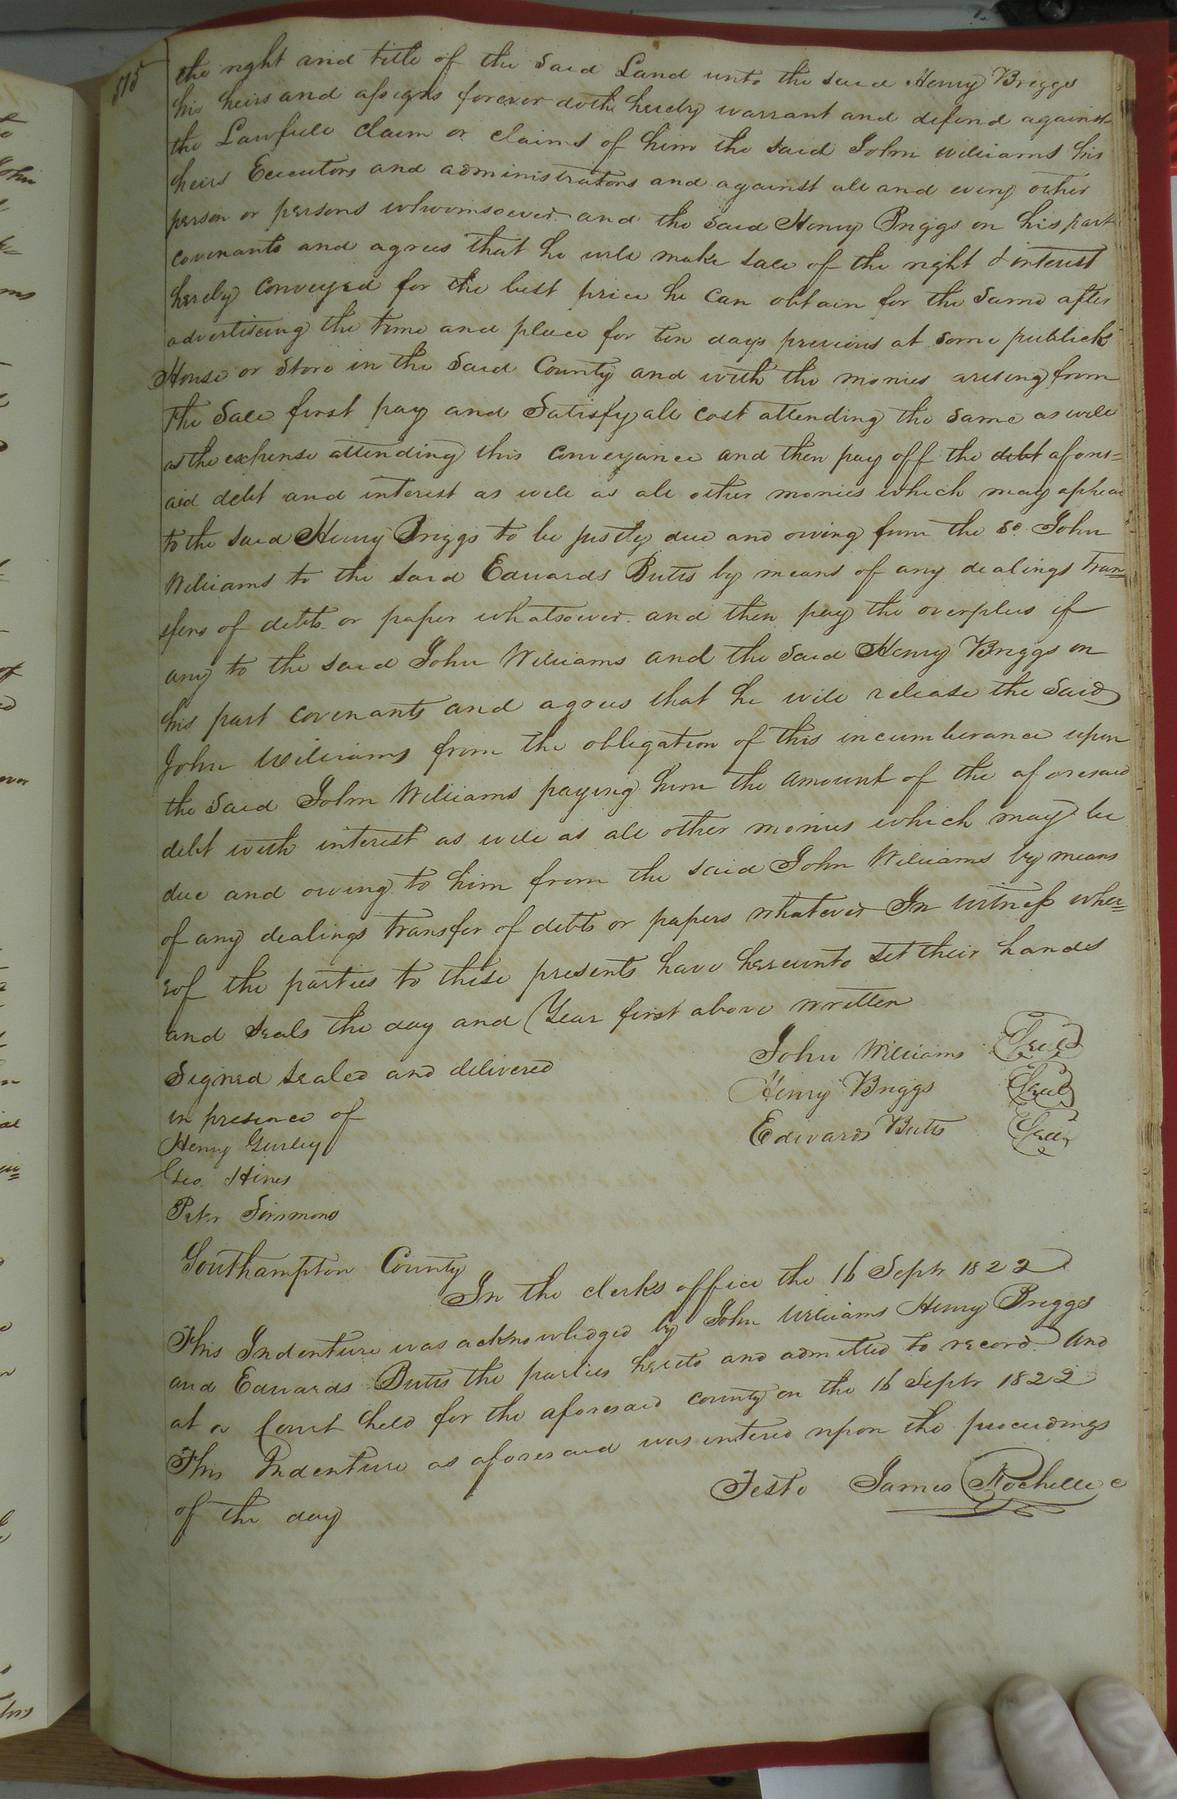 515
the right and title of the Said Land unto the said Henry Briggs
his heirs and assigns forever doth hereby warrant and defend against
the Lawfull claim or claims of him the said John Williams his
heirs Executors and administrators and against all and every other
person or persons whomsoever and the said Henry Briggs on his part
covenants and agrees that he will make sale of the right & interest
hereby conveyed for the best price he can obtain for the same after
advertiseing the time and place for ten days previous at some publick
House or Store in the Said County and with the monies arising from
the Sale first pay and Satisfy all cost attending the same as well
as the expense attending this conveyance and then pay off the debt afores=
aid debt and interest as well as all other monies which may appear
to the said Henry Briggs to be justly due and owing from the sd. John
Williams to the said Edwards Butts by means of any dealings tran=
sfers of debts or paper whatsoever and then pay the overplus if
any to the said John Williams and the Said Henry Briggs on
his part covenants and agrees that he will release the Said
John Williams from the obligation of this incumberance upon
the Said John Williams paying him the amount of the aforesaid
debt with interest as well as all other monies which may be
due and owing to him from the said John Williams by means
of any dealings transfer of debts or papers whatever In witness wher=
eof the parties to these presents have hereunto set their hands
and seals the day and Year first above written
John Williams (Seal)
Signed sealed and delivered
Henry Briggs (Seal)
in presence of
Edwards Butts (Seal)
Henry Gurley
Geo. Hines
Peter Simmons
Southampton County
In the clerks office the 16 Septr 1822
This Indenture was acknowledged by John Williams Henry Briggs
and Edwards Butts the parties hereto and admitted to record. And
at a Court held for the aforesaid county on the 16 Septr 1822
This Indenture as aforesaid was entered upon the proceedings
of the day
Teste James Rochelle c